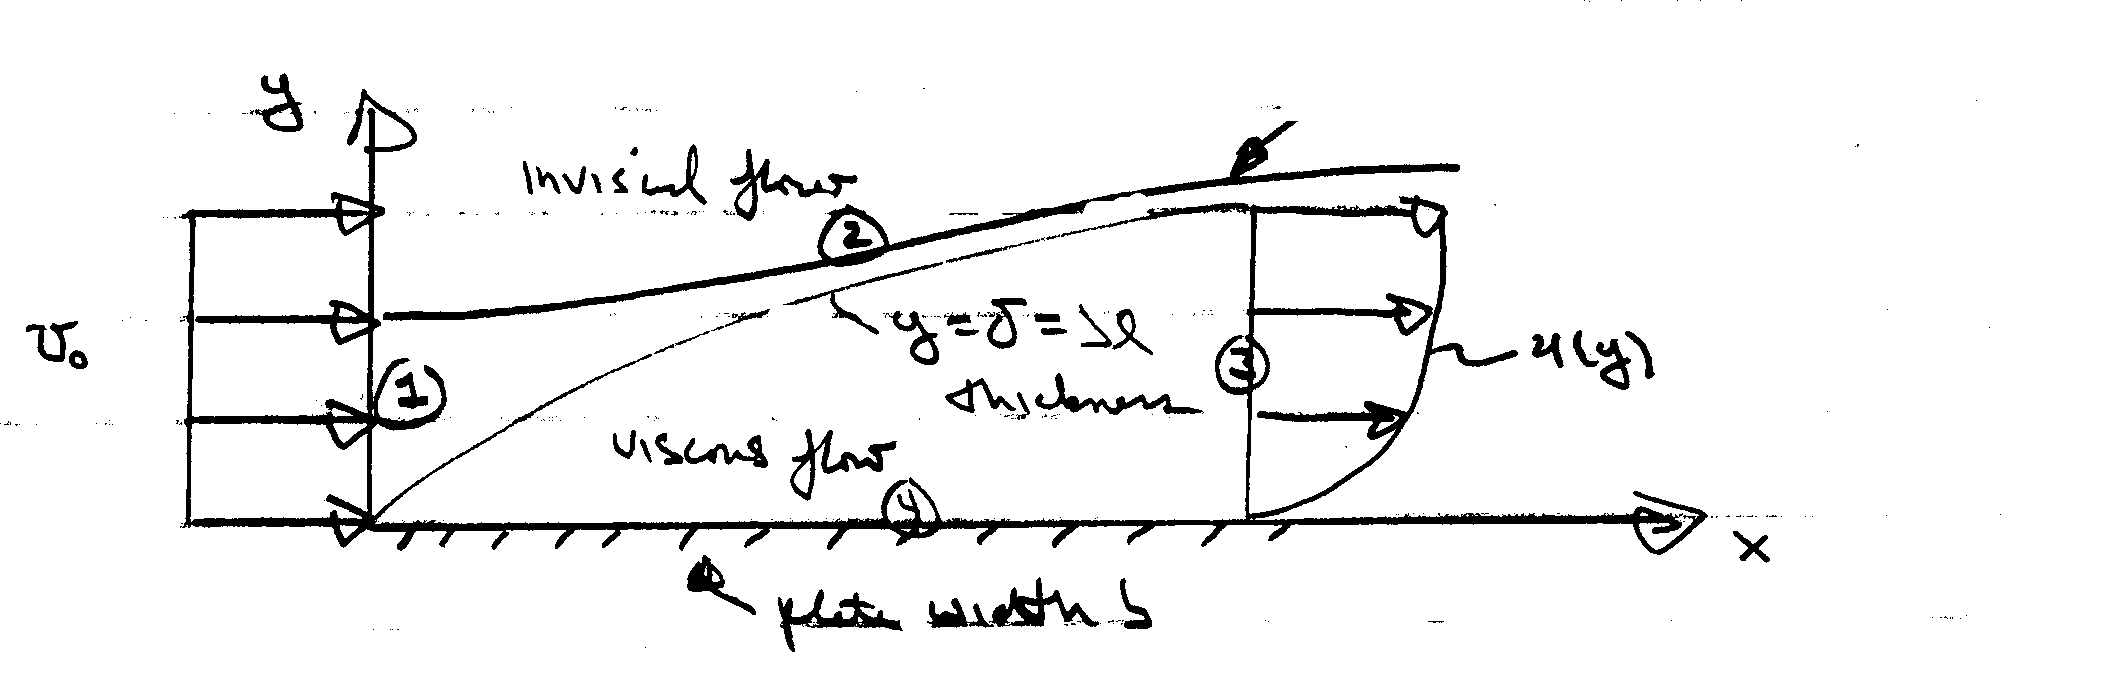 y
inviscid flow
2
U₀
y = δ = bl
thickness
3
u(y)
1
viscous flow
4
x
plate width b